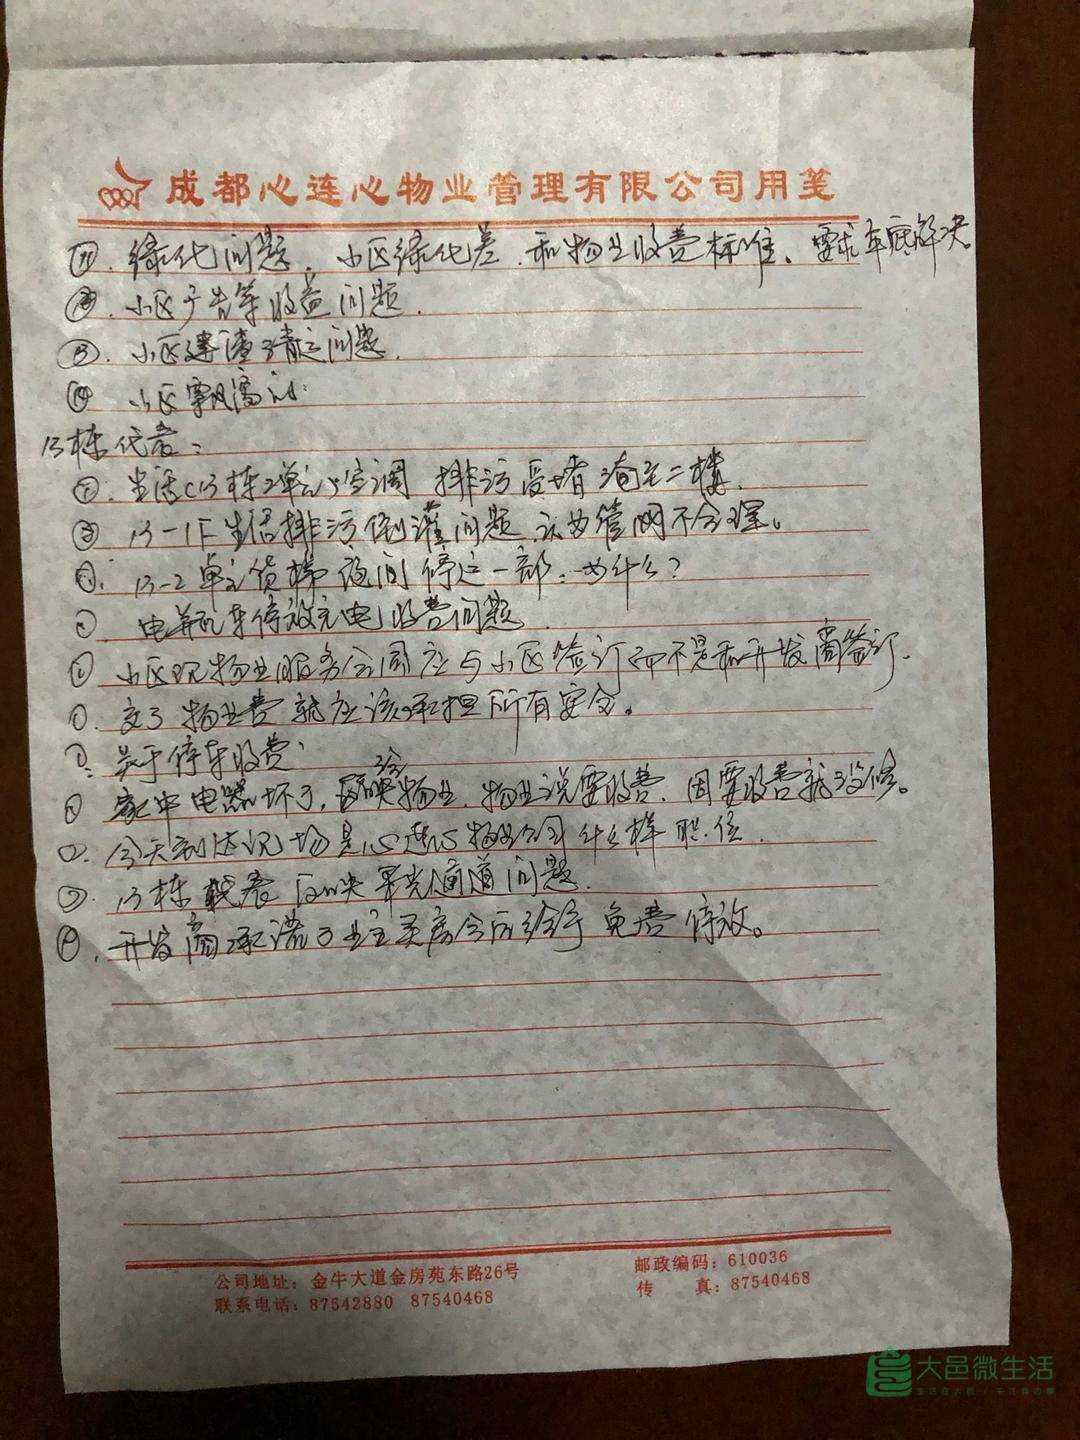 成都心连心物业管理有限公司用笺
⑪. 绿化问题, 小区绿化差, 和物业收费标准、要求年底解决
⑫. 小区广告等收益问题.
⑬. 小区建渣清运问题.
⑭ 小区飘窗
13栋代表:
生活(13栋2单元)空调 排污受堵 淹至二楼.
13-1F生活排污倒灌问题, 认为管网不合理。
13-2单元货梯夜间停运一部, 为什么?
电瓶车停放充电收费问题.
小区现物业服务合同应与小区签订而不是和开发商签订.
交了物业费就应该承担所有安全。
关于停车收费:
家中电器坏了, 反映物业, 物业说要收费, 因要收费就没修。
今天到达现场是心连心物业公司什么样职位.
13栋代表反映采光通道问题.
开发商承诺了业主买房今后给予免费停放。
公司地址: 金牛大道金房苑东路26号
邮政编码: 610036
联系电话: 87542880 87540468
传 真: 87540468
大邑微生活